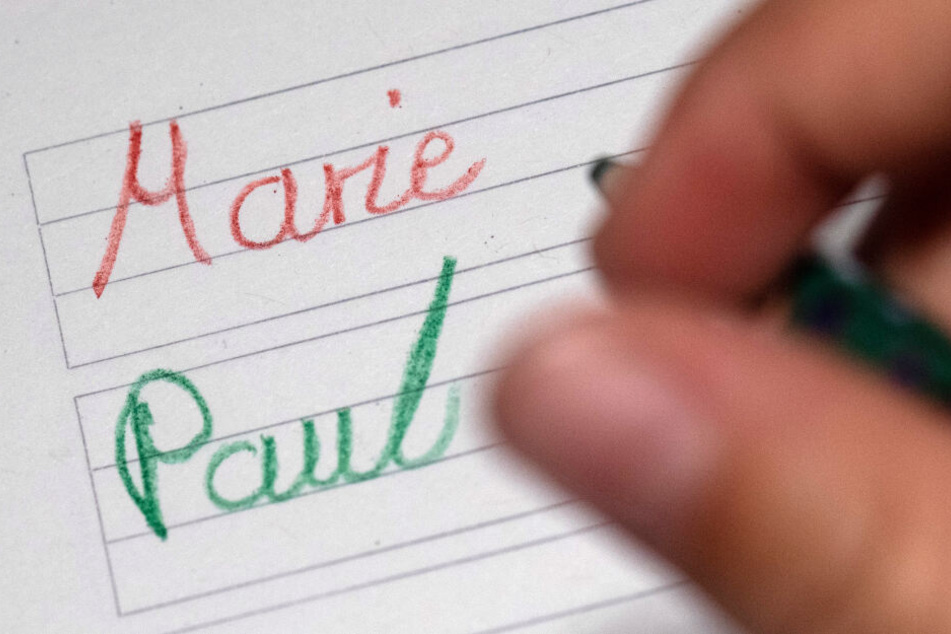 Marie
Paul